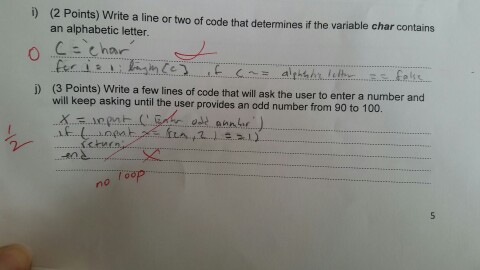 i) (2 Points) Write a line or two of code that determines if the variable char contains
an alphabetic letter.
0 C = 'char'
for i = 1: length(c) if c ~= alphabetic letter == false
j) (3 Points) Write a few lines of code that will ask the user to enter a number and
will keep asking until the user provides an odd number from 90 to 100.
X = input ('Enter odd number')
1/2 if ( input ,2) ==1)
return;
end
no loop
5